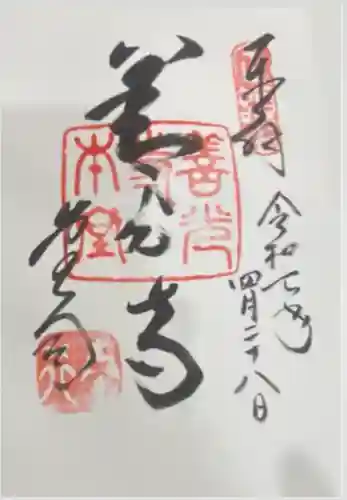 奉拝
令和七年
四月二十八日
善光寺
善光寺本堂